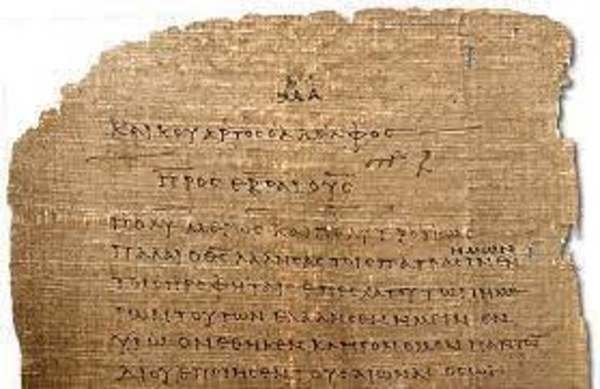 ΚΑΙ ΚΟΥΑΡΤΟϹ Ο ΑΔΕΛΦΟϹ
ΠΡΟϹ ΕΒΡΑΙΟΥϹ
ΠΟΛΥΜΕΡΩϹ ΚΑΙ ΠΟΛΥΤΡΟΠΩϹ
ΗΜΩΝ
ΠΑΛΑΙ Ο ΘϹ ΛΑΛΗϹΑϹ ΤΟΙϹ ΠΑΤΡΑϹΙΝ ΕΝ
ΤΟΙϹ ΠΡΟΦΗΤΑΙϹ ΕΠ ΕϹΧΑΤΟΥ ΤΩΝ ΗΜΕ
ΡΩΝ ΤΟΥΤΩΝ ΕΛΑΛΗϹΕΝ ΗΜΕΙΝ ΕΝ
ΥΙΩ ΟΝ ΕΘΗΚΕΝ ΚΛΗΡΟΝΟΜΟΝ ΠΑΝΤΩ
ΔΙ ΟΥ ΕΠΟΙΗϹΕΝ ΤΟΥϹ ΑΙΩΝΑϹ